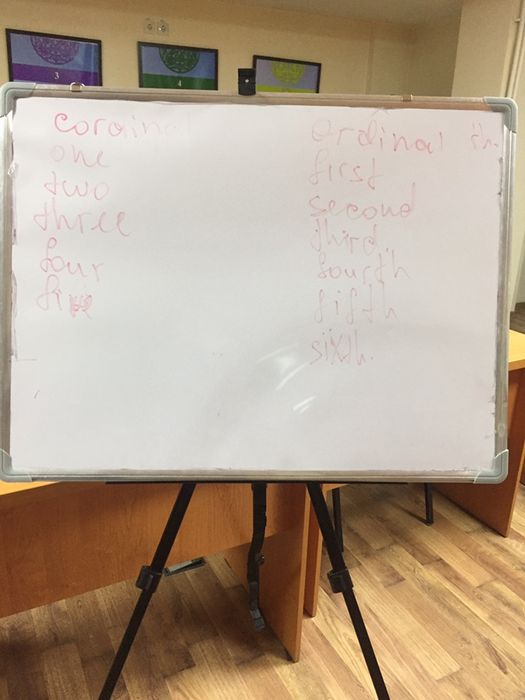 3
4
cordinal
one
two
three
four
five
ordinal th.
first
second
third
fourth
fifth
sixth.